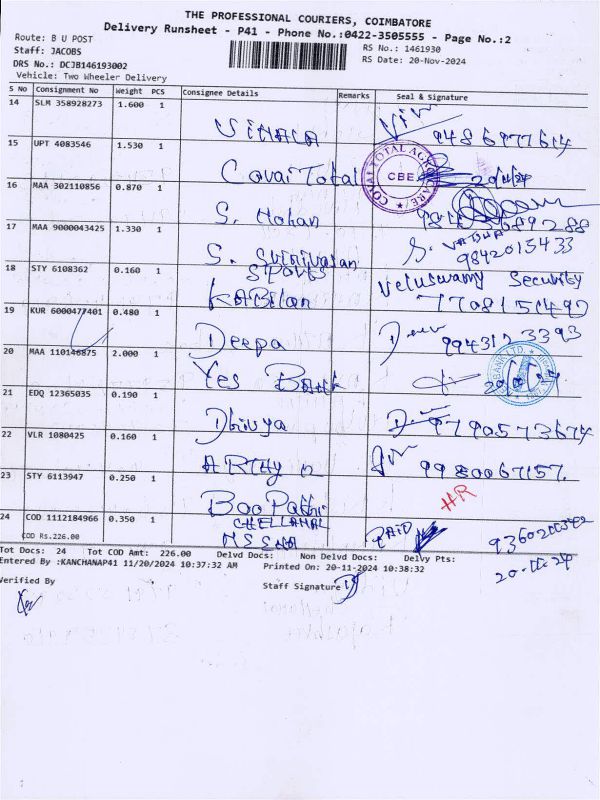 THE PROFESSIONAL COURIERS, COIMBATORE
Delivery Runsheet - P41 - Phone No.:0422-3505555 - Page No.:2
Route: B U POST
RS No.: 1461930
Staff: JACOBS
RS Date: 20-Nov-2024
DRS No.: DCJB146193002
Vehicle: Two Wheeler Delivery
S No Consignment No Weight PCS Consignee Details Remarks Seal & Signature
14 SLM 358928273 1.600 1
15 UPT 4083546 1.530 1 Covai Total CBE
16 MAA 302110856 0.870 1 S. Mohan
17 MAA 9000043425 1.330 1 S. Srinivasan S. 9842015433
18 STY 6108362 0.160 1 Sports Kabilan Veluswamy Security
19 KUR 6000477401 0.480 1 Deepa 9943123393
20 MAA 110146875 2.000 1 Yes Bank
21 EDQ 12365035 0.190 1 Dhivya 9790573674
22 VLR 1080425 0.160 1 9980067157.
23 STY 6113947 0.250 1 Boopathi HR
24 COD 1112184966 0.350 1 CHELLAMAL PAID
COD Rs.226.00
20-11-24
Tot Docs: 24 Tot COD Amt: 226.00 Delvd Docs: Non Delvd Docs: Delvy Pts:
Entered By :KANCHANAP41 11/20/2024 10:37:32 AM Printed On: 20-11-2024 10:38:32
Verified By Staff Signature